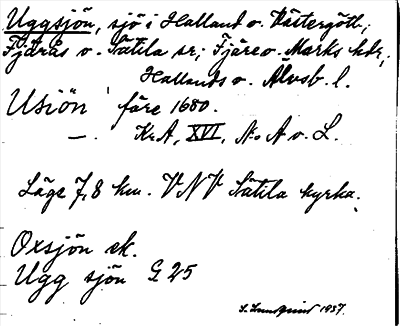 Uggsjön, sjö i Halland o. Västergötl.;
Fjärås o. Sätila sr; Fjäre o. Marks hdr;
Hallands o. Älvsb. l.
Usiön före 1680.
—. Kr.A, XVI, N:o A o. L.
Läge 7,8 km. VNV Sätila kyrka.
Oxsjön ek.
Ugg sjön G 25
S. Lundquist 1937.